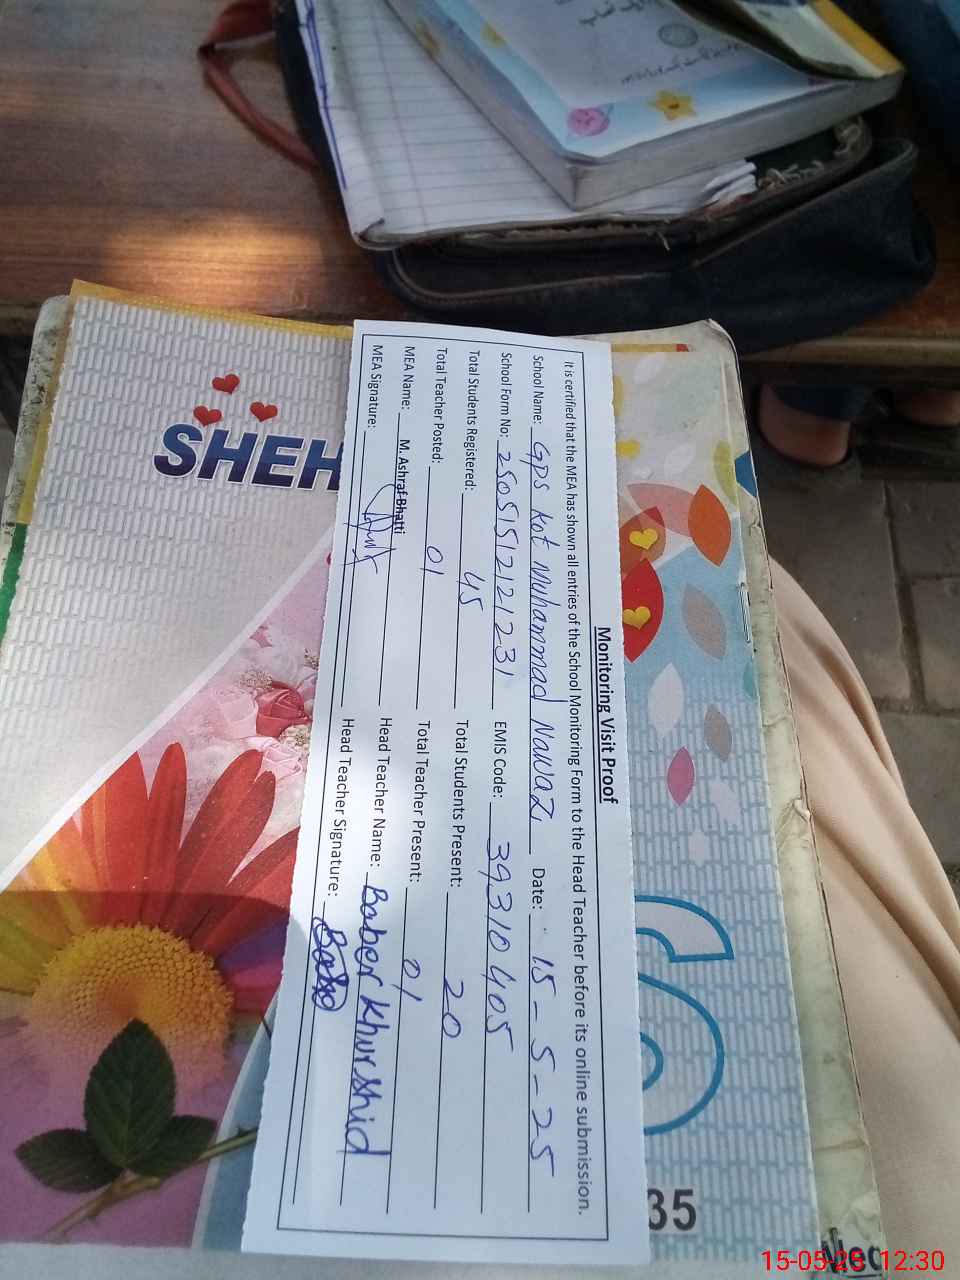 Monitoring Visit Proof
It is certified that the MEA has shown all entries of the School Monitoring Form to the Head Teacher before its online submission.
School Name: Gps Kot Muhammad Nawaz Date: 15-5-25
School Form No: 25051512121231 EMIS Code: 39310405
Total Students Registered: 45 Total Students Present: 20
Total Teacher Posted: 01 Total Teacher Present: 01
MEA Name: M. Ashraf Bhatti Head Teacher Name: Baber Khurshid
MEA Signature: Head Teacher Signature:
SHEH
35
15-05-25 12:30